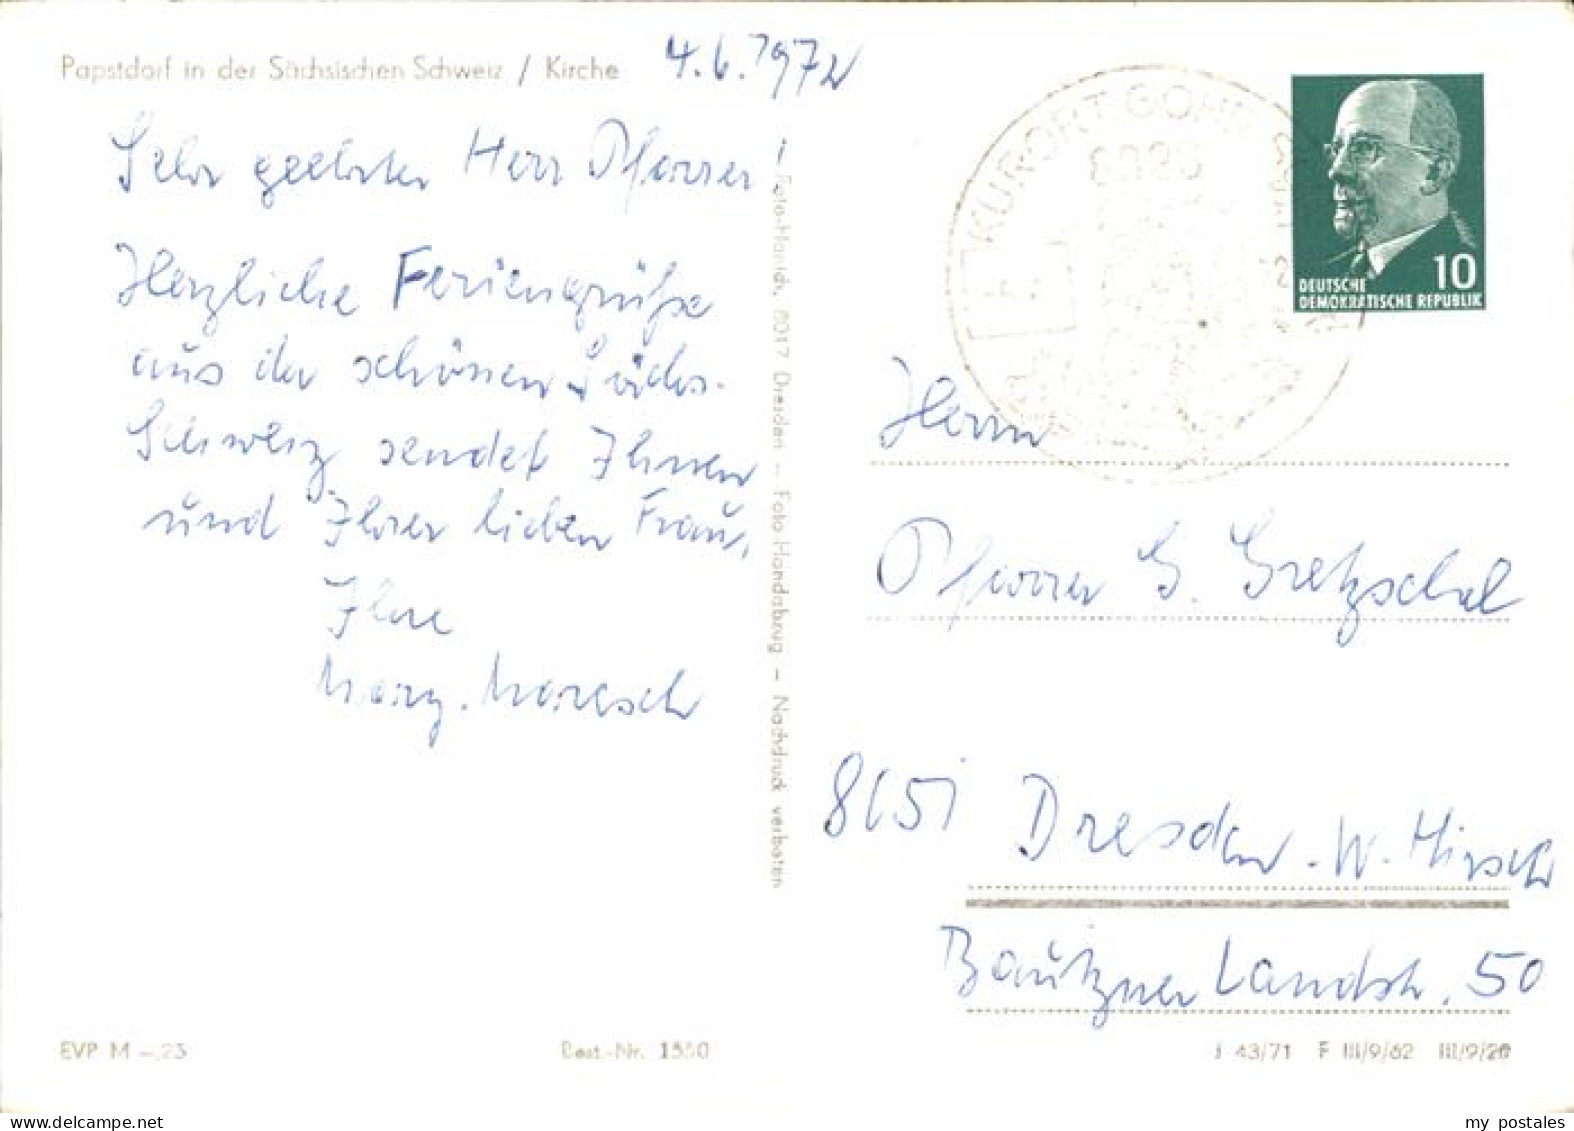 Papstdorf in der Sächsischen Schweiz / Kirche
4.6.1972
Sehr geehrter Herr Pfarrer!
Herzliche Feriengrüße
aus der schönen Sächs.
Schweiz sendet Ihnen
und Ihrer lieben Frau,
Ihre
Marg.
Foto-Handabzug – Nachdruck verboten
8017 Dresden
KURORT GOHR
DEUTSCHE
DEMOKRATISCHE REPUBLIK
10
Herrn
Pfarrer G. Gretzschel
8051 Dresden-W. Hirsch
Bautzner Landstr. 50
EVP M –,25
Best.-Nr. 1550
J 43/71 F III/9/62 III/9/26
my postales